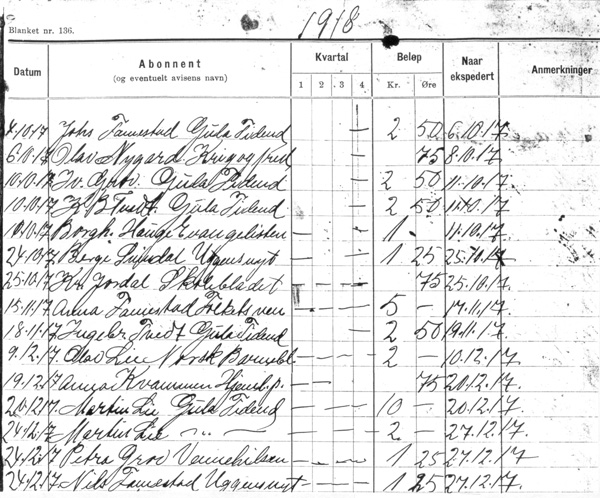 1918
Blanket nr. 136.
Datum Abonnent (og eventuelt avisens navn) Kvartal 1 2 3 4 Beløp Kr. Øre Naar ekspedert Anmerkninger
4.10.17 Johs Tamestad Gula Tidend — 2 50 6.10.17.
6.10.17 Olav Nygard Krig og fred — 75 8.10.17.
10.10.17 Iv. Grov. Gula Tidend — 2 50 11.10.17.
10.10.17 K B Tvedt. Gula Tidend — 2 50 11.10.17.
10.10.17 Borgh. Hauge Evangelisten — 1 11.10.17.
24.10.17 Børge Uggensnyt — 1 25 25.10.17.
25.10.17 Kr. Jordal Skolebladet — — — — 75 25.10.17.
15.11.17 Anna Tamestad Folkets ven — — — — 5 — 17.11.17.
18.11.17 Ingebr. Tvedt Gula Tidend — 2 50 19.11.17.
9.12.17 Olav Lie Norsk Barnebl. — — — — 2 — 10.12.17.
19.12.17 Anna Kvammen — — 75 20.12.17.
20.12.17. Martin Lie Gula Tidend — — — — 10 — 20.12.17.
24.12.17 Martin Lie — „ — — — — — 2 — 27.12.17.
24.12.17 Petra Grov Vennehilsen — — — — 1 25 27.12.17
24.12.17 Nils Tamestad Uggensnyt — — — — 1 25 27.12.17.